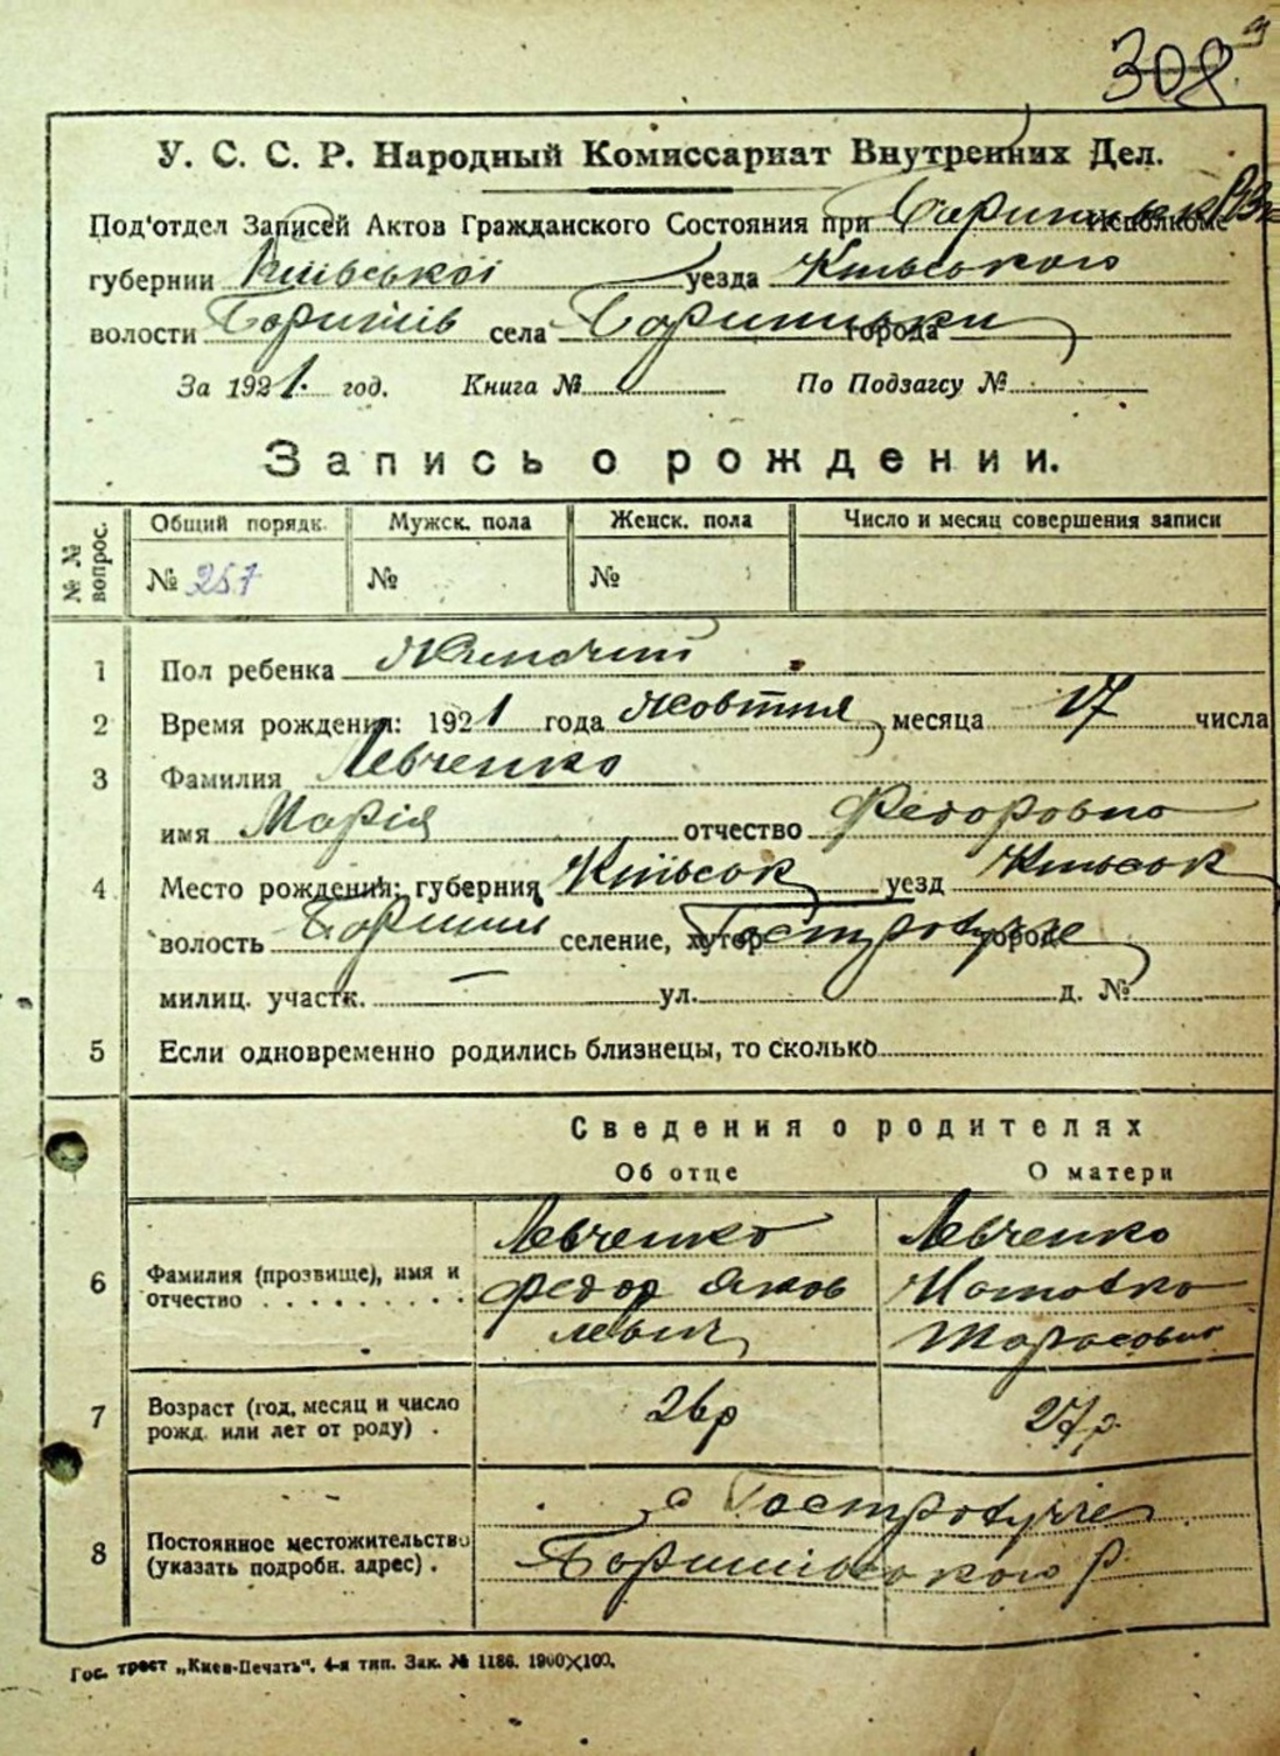 308
У. С. С. Р. Народный Комиссариат Внутренних Дел.
Под'отдел Записей Актов Гражданского Состояния при Исполкоме
губернии Київської уезда Київського
волости села города
За 1921. год. Книга № По Подзагсу №
Запись о рождении.
№ № вопрос. Общий порядк. Мужск. пола Женск. пола Число и месяц совершения записи
№ 257 № №
1 Пол ребенка Жиночий
2 Время рождения: 1921 года жовтня месяца 17 числа
3 Фамилия Левченко
имя Марія отчество Федоровна
4 Место рождения: губерния Київськ уезд Київськ
волость селение, хутор город
милиц. участк. — ул. д. №
5 Если одновременно родились близнецы, то сколько
Сведения о родителях
Об отце О матери
6 Фамилия (прозвище), имя и отчество Левченко Федор Яковлевич Левченко Тарасовна
7 Возраст (год, месяц и число рожд. или лет от роду) 26р 27р.
8 Постоянное местожительство (указать подробн. адрес) с
Гос. трест „Киев-Печать“. 4-я тип. Зак. № 1186. 1900×100.